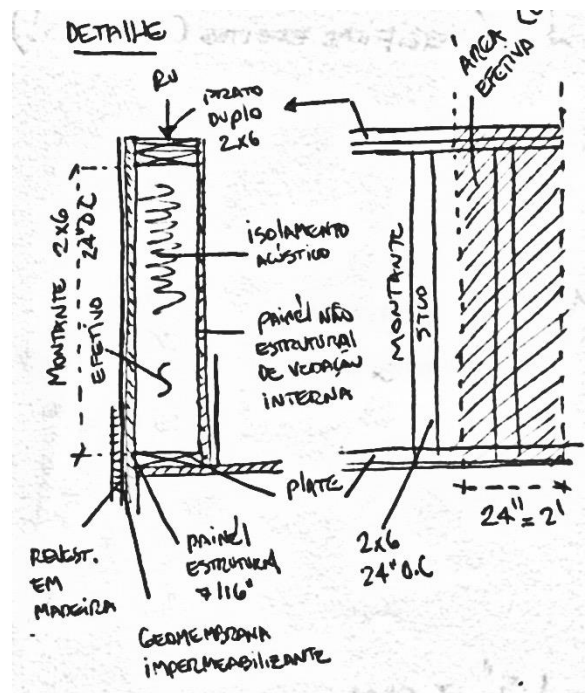 DETALHE
RU
PRATO
DUPLO
2x6
ÁREA
EFETIVA
MONTANTE 2x6
24" O.C
EFETIVO
ISOLAMENTO
ACÚSTICO
PAINÉL NÃO
ESTRUTURAL
DE VEDAÇÃO
INTERNA
MONTANTE
STUD
PLATE
24" = 2'
2x6
24" O.C
REVEST.
EM
MADEIRA
PAINÉL
ESTRUTURAL
7/16"
GEOMEMBRANA
IMPERMEABILIZANTE